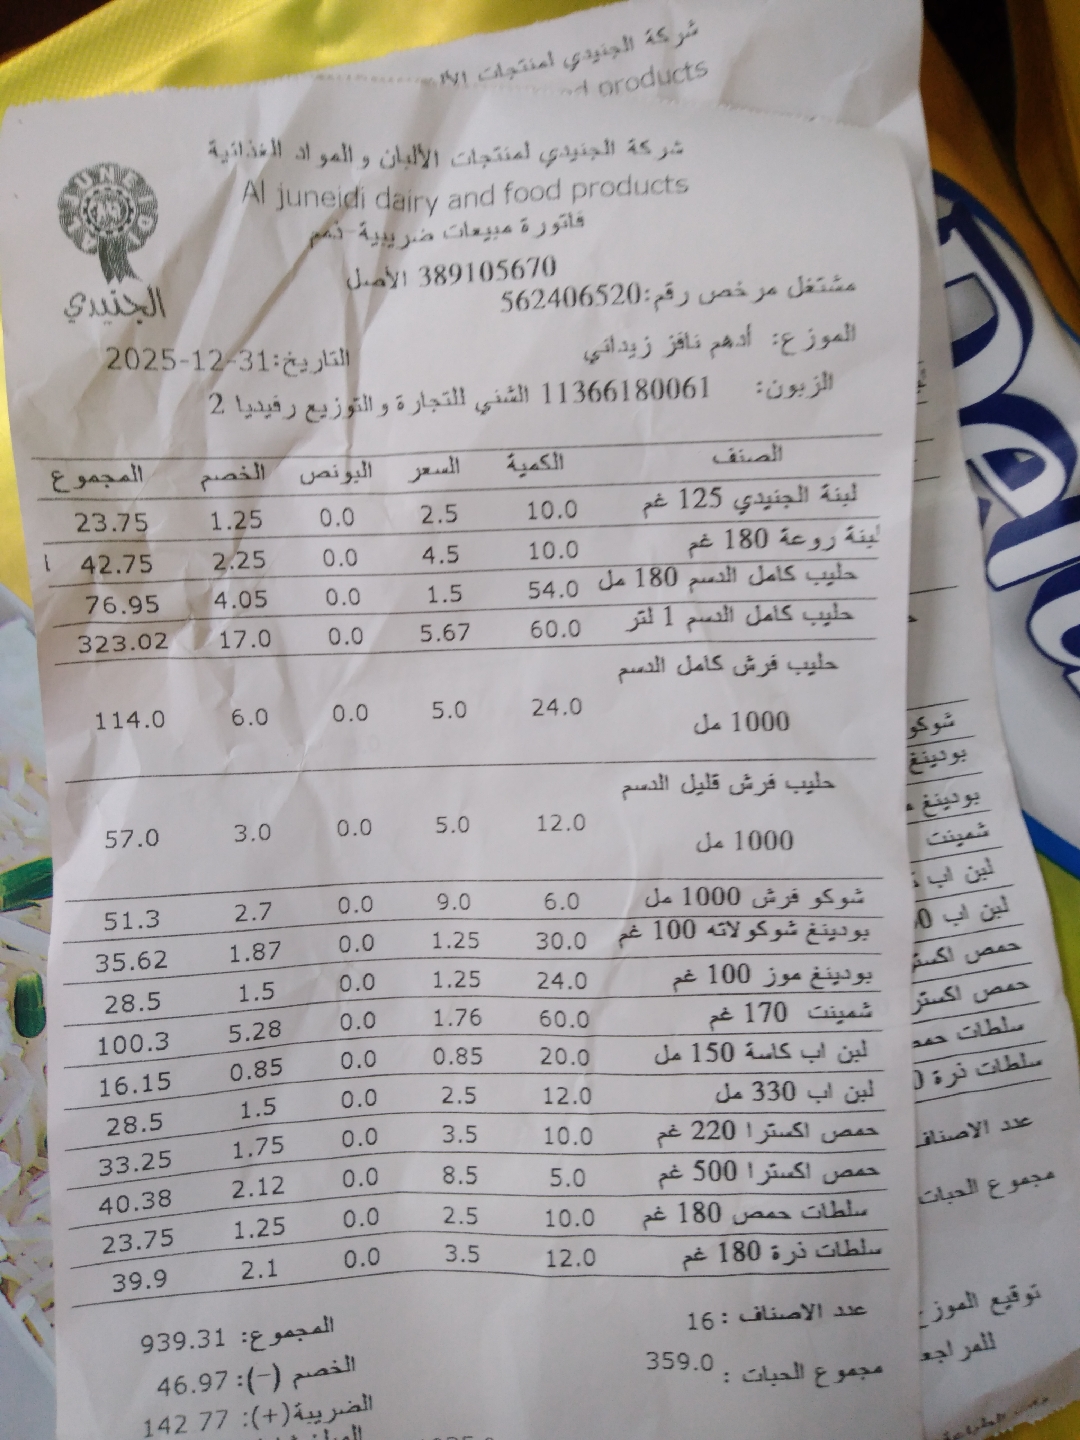 شركة الجنيدي لمنتجات الألبان
d products
شركة الجنيدي لمنتجات الألبان والمواد الغذائية
Al juneidi dairy and food products
JUNEIDI
الجنيدي
فاتورة مبيعات ضريبية-ذمم
389105670 الأصل
مشتغل مرخص رقم:562406520
الموزع: أدهم نافز زيداني
التاريخ:31-12-2025
الزبون: 11366180061 الشني للتجارة والتوزيع رفيديا 2
الصنف الكمية السعر البونص الخصم المجموع
لبنة الجنيدي 125 غم 10.0 2.5 0.0 1.25 23.75
لبنة روعة 180 غم 10.0 4.5 0.0 2.25 42.75
حليب كامل الدسم 180 مل 54.0 1.5 0.0 4.05 76.95
حليب كامل الدسم 1 لتر 60.0 5.67 0.0 17.0 323.02
حليب فرش كامل الدسم
1000 مل 24.0 5.0 0.0 6.0 114.0
حليب فرش قليل الدسم
1000 مل 12.0 5.0 0.0 3.0 57.0
شوكو فرش 1000 مل 6.0 9.0 0.0 2.7 51.3
بودينغ شوكولاته 100 غم 30.0 1.25 0.0 1.87 35.62
بودينغ موز 100 غم 24.0 1.25 0.0 1.5 28.5
شمينت 170 غم 60.0 1.76 0.0 5.28 100.3
لبن اب كاسة 150 مل 20.0 0.85 0.0 0.85 16.15
لبن اب 330 مل 12.0 2.5 0.0 1.5 28.5
حمص اكسترا 220 غم 10.0 3.5 0.0 1.75 33.25
حمص اكسترا 500 غم 5.0 8.5 0.0 2.12 40.38
سلطات حمص 180 غم 10.0 2.5 0.0 1.25 23.75
سلطات ذرة 180 غم 12.0 3.5 0.0 2.1 39.9
عدد الاصناف : 16
المجموع: 939.31
مجموع الحبات : 359.0
الخصم (-): 46.97
الضريبة(+): 142.77
شوكو
بودينغ
بودينغ
شمينت
لبن اب
لبن اب
حمص اكستر
حمص اكستر
سلطات حمص
سلطات ذرة
عدد الاصناف
مجموع الحبات
توقيع الموزع